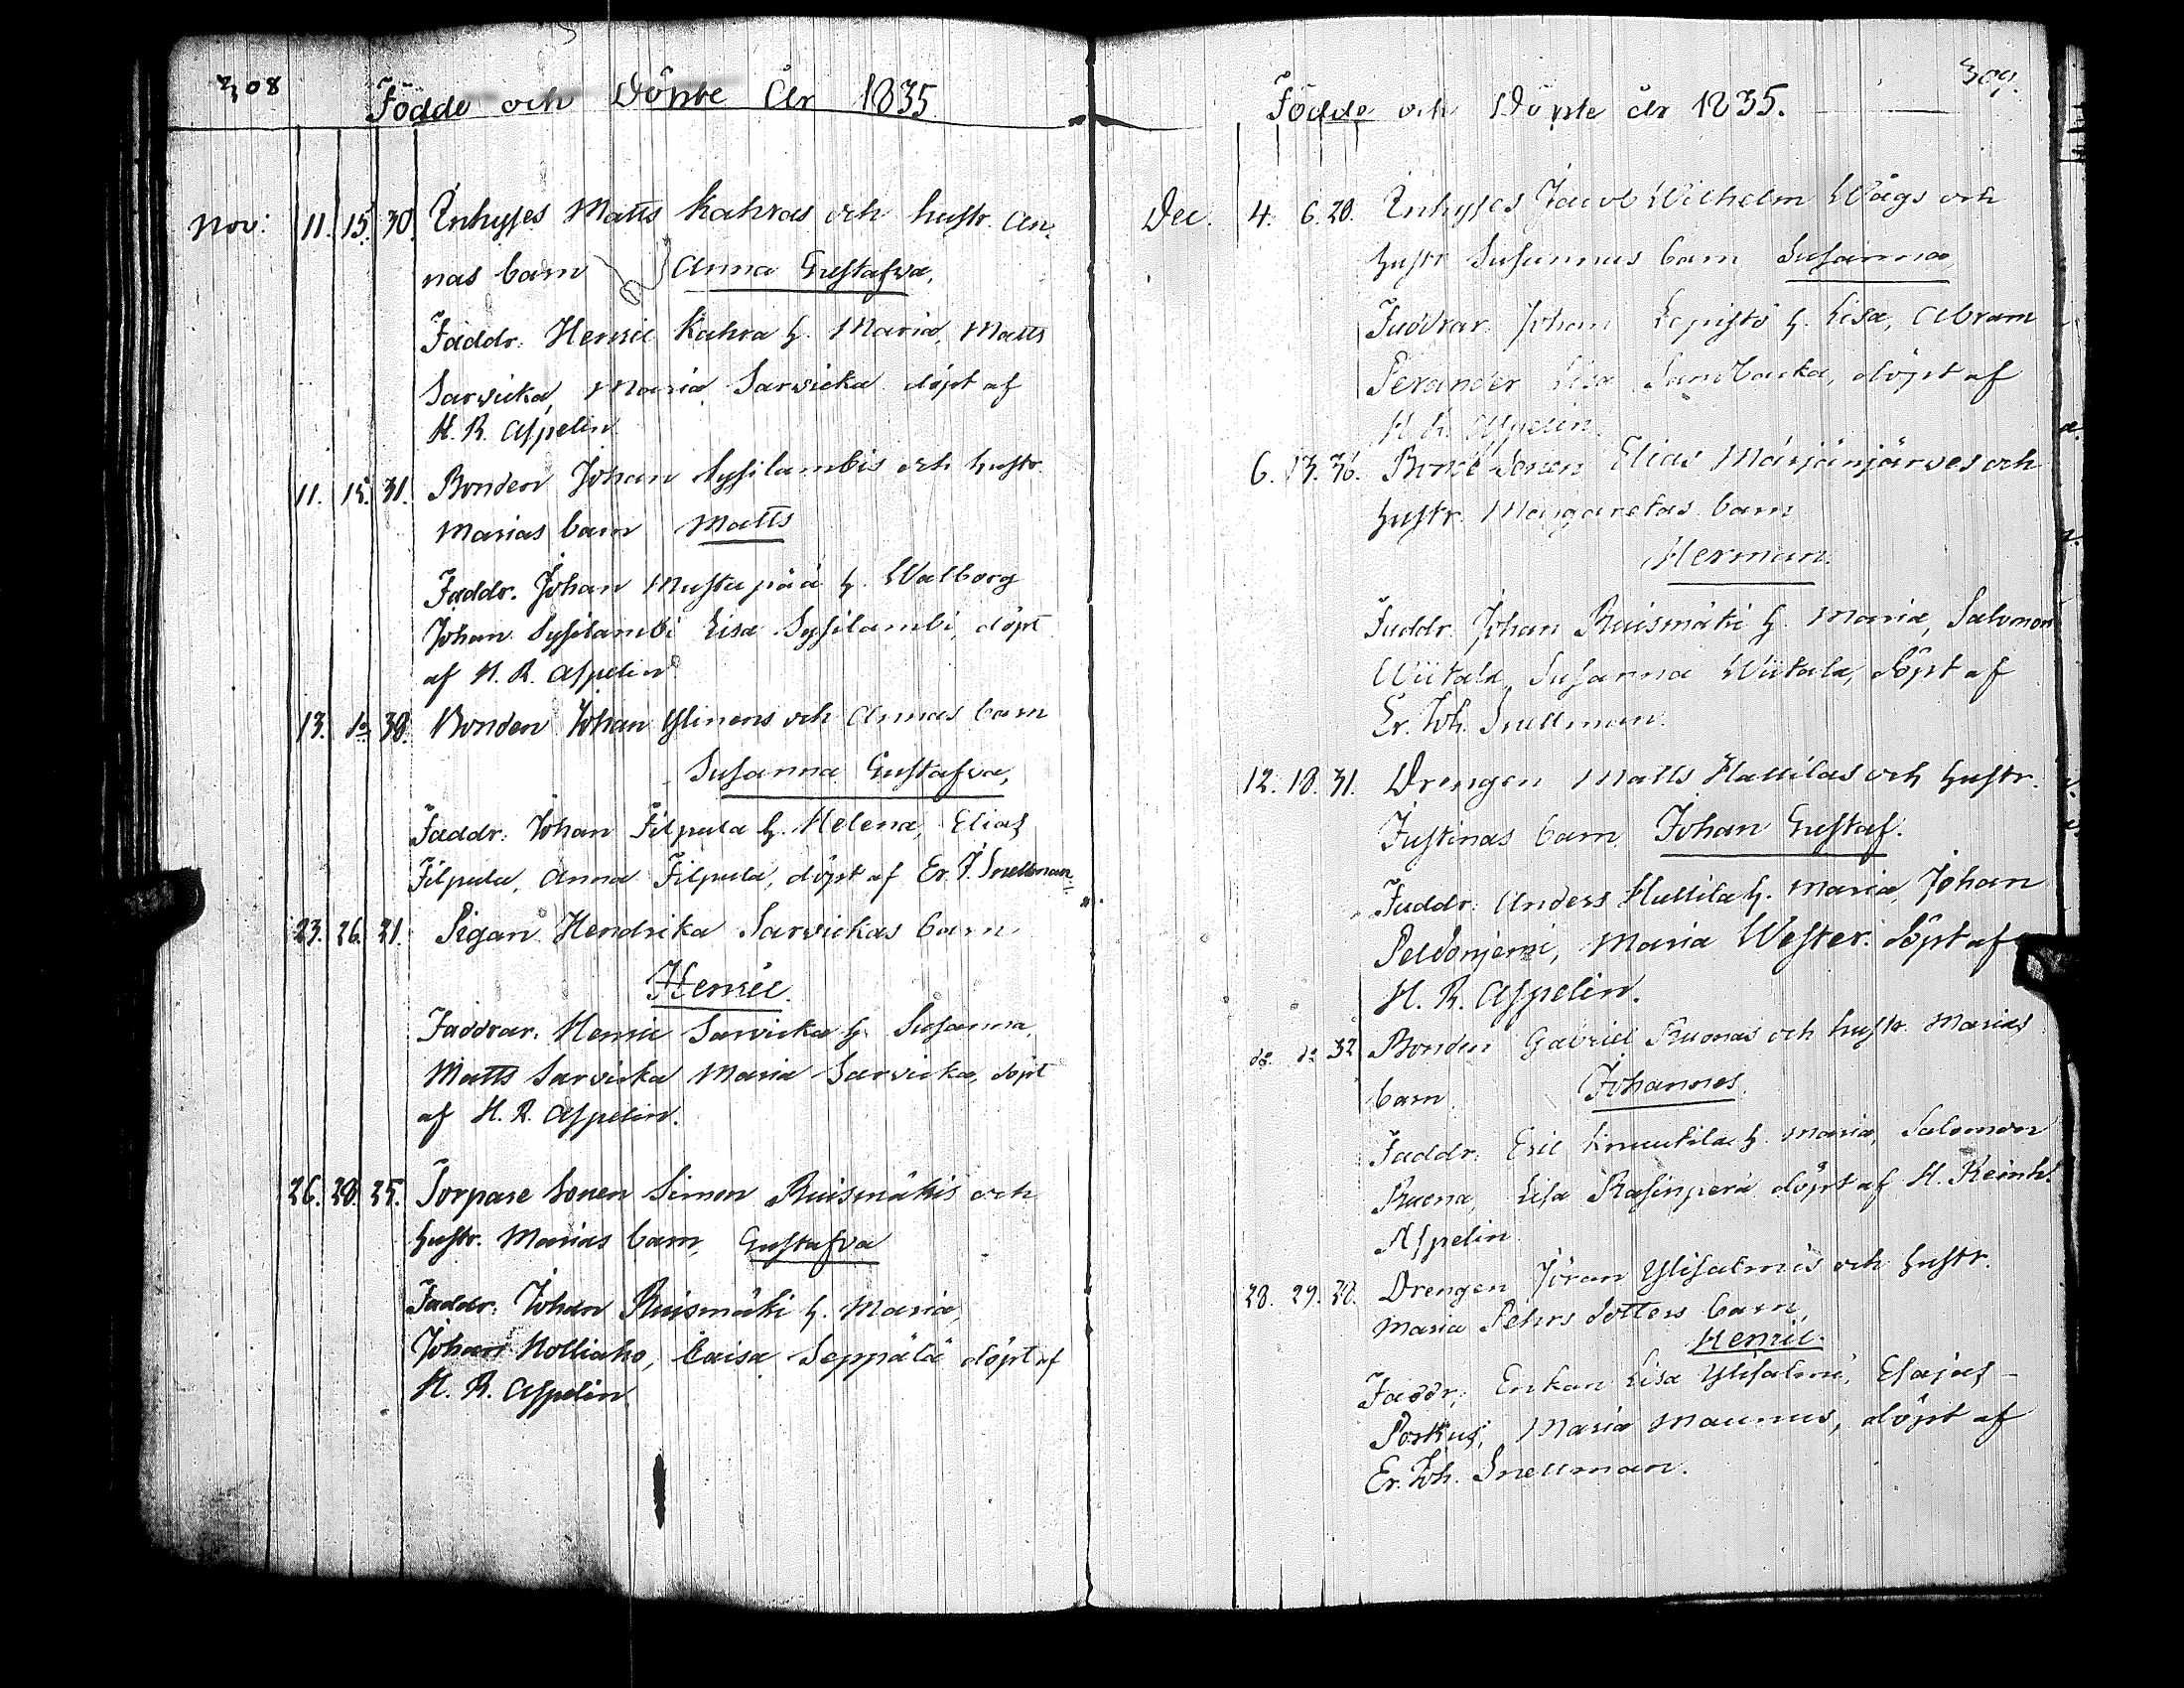 308
Födde och Döpte År 1835
Nov: 11. 15. 30. Inhyses Matts Kahras och hustr. An-
nas barn Anna Gustafva,
Faddr: Henric Kahra h. Maria, Matts
Sarvicka, Maria Sarvicka döpt af
H. R. Aspelin
11. 15. 31. Bonden Johan Sysilambis och hustr.
Marias barn Matts
Faddr. Johan Mustapää h. Walborg
Johan Sysilambi Lisa Sysilambi, döpt
af H. R. Aspelin
13. do 38. Bonden Johan Ylinens och Annas barn
Susanna Gustafva,
Faddr: Johan Filpula h. Helena, Elias
Filpula, Anna Filpula, döpt af Er. J. Snellman
23. 26. 21. Pigan Hendrika Sarvickas barn
Henric
Faddrar. Henric Sarvicka h. Susanna,
Matts Sarvicka Maria Sarvicka, döpt
af H. R. Aspelin.
26. 28. 25. Torpare Sonen Simon Ruismäkis och
hustr. Marias barn, Gustafva
Faddr: Johan Ruismäki h. Maria,
Johan Holliaho, Caisa Seppälä döpt af
H. R. Aspelin
309.
Födde och Döpte år 1835.
Dec. 4. 6. 28. Inhyses Jacob Wilhelm Wågs och
hustr Susannas barn Susanna
Faddrar. Johan Lepistö h. Lisa, Abram
Perander Lisa Sandbacka, döpt af
H. R. Aspelin
6. 13. 36. Bonde Sonen Elias Märjänjärves och
hustr. Margaretas barn
Herman.
Faddr. Johan Ruismäki h. Maria, Salomon
Wiitala, Susanna Wiitala, döpt af
Er. Joh. Snellman.
12. 18. 31. Drengen Matts Hallilas och hustr.
Justinas barn Johan Gustaf.
Faddr: Anders Hallila h. Maria, Johan
Peldonjemi, Maria Wester. döpt af
H. R. Aspelin.
do. do 32 Bonden Gabriel Ruonas och hustr. Marias
barn Johannes.
Faddr: Eric Knuutila h. Maria, Salomon
Ruona, Lisa Rasinperä döpt af H. Reinh.
Aspelin
28. 29. 28. Drengen Jöran Ylisalmis och hustr.
Maria Pehrs dotters barn
Henric.
Faddr: Enkan Lisa Ylisalmi, Esajas
Porkus, Maria Maunus, döpt af
Er. Joh. Snellman.